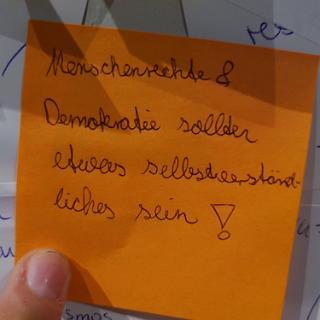 Menschenrechte &
Demokratie sollten
etwas selbstverständ-
liches sein!